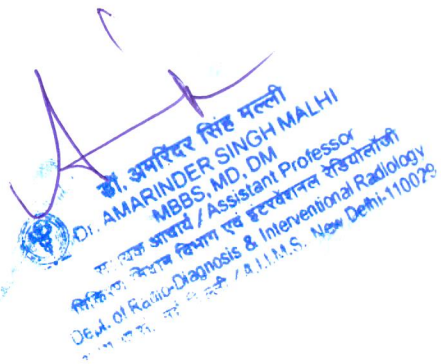 डॉ. अमरिंदर सिंह मल्ली
Dr. AMARINDER SINGH MALHI
MBBS, MD, DM
आचार्य / Assistant Professor
विभाग एवं इंटरवेंशनल रेडियोलॉजी
Dept. of Radio-Diagnosis & Interventional Radiology
/ A.I.I.M.S. New Delhi-110029